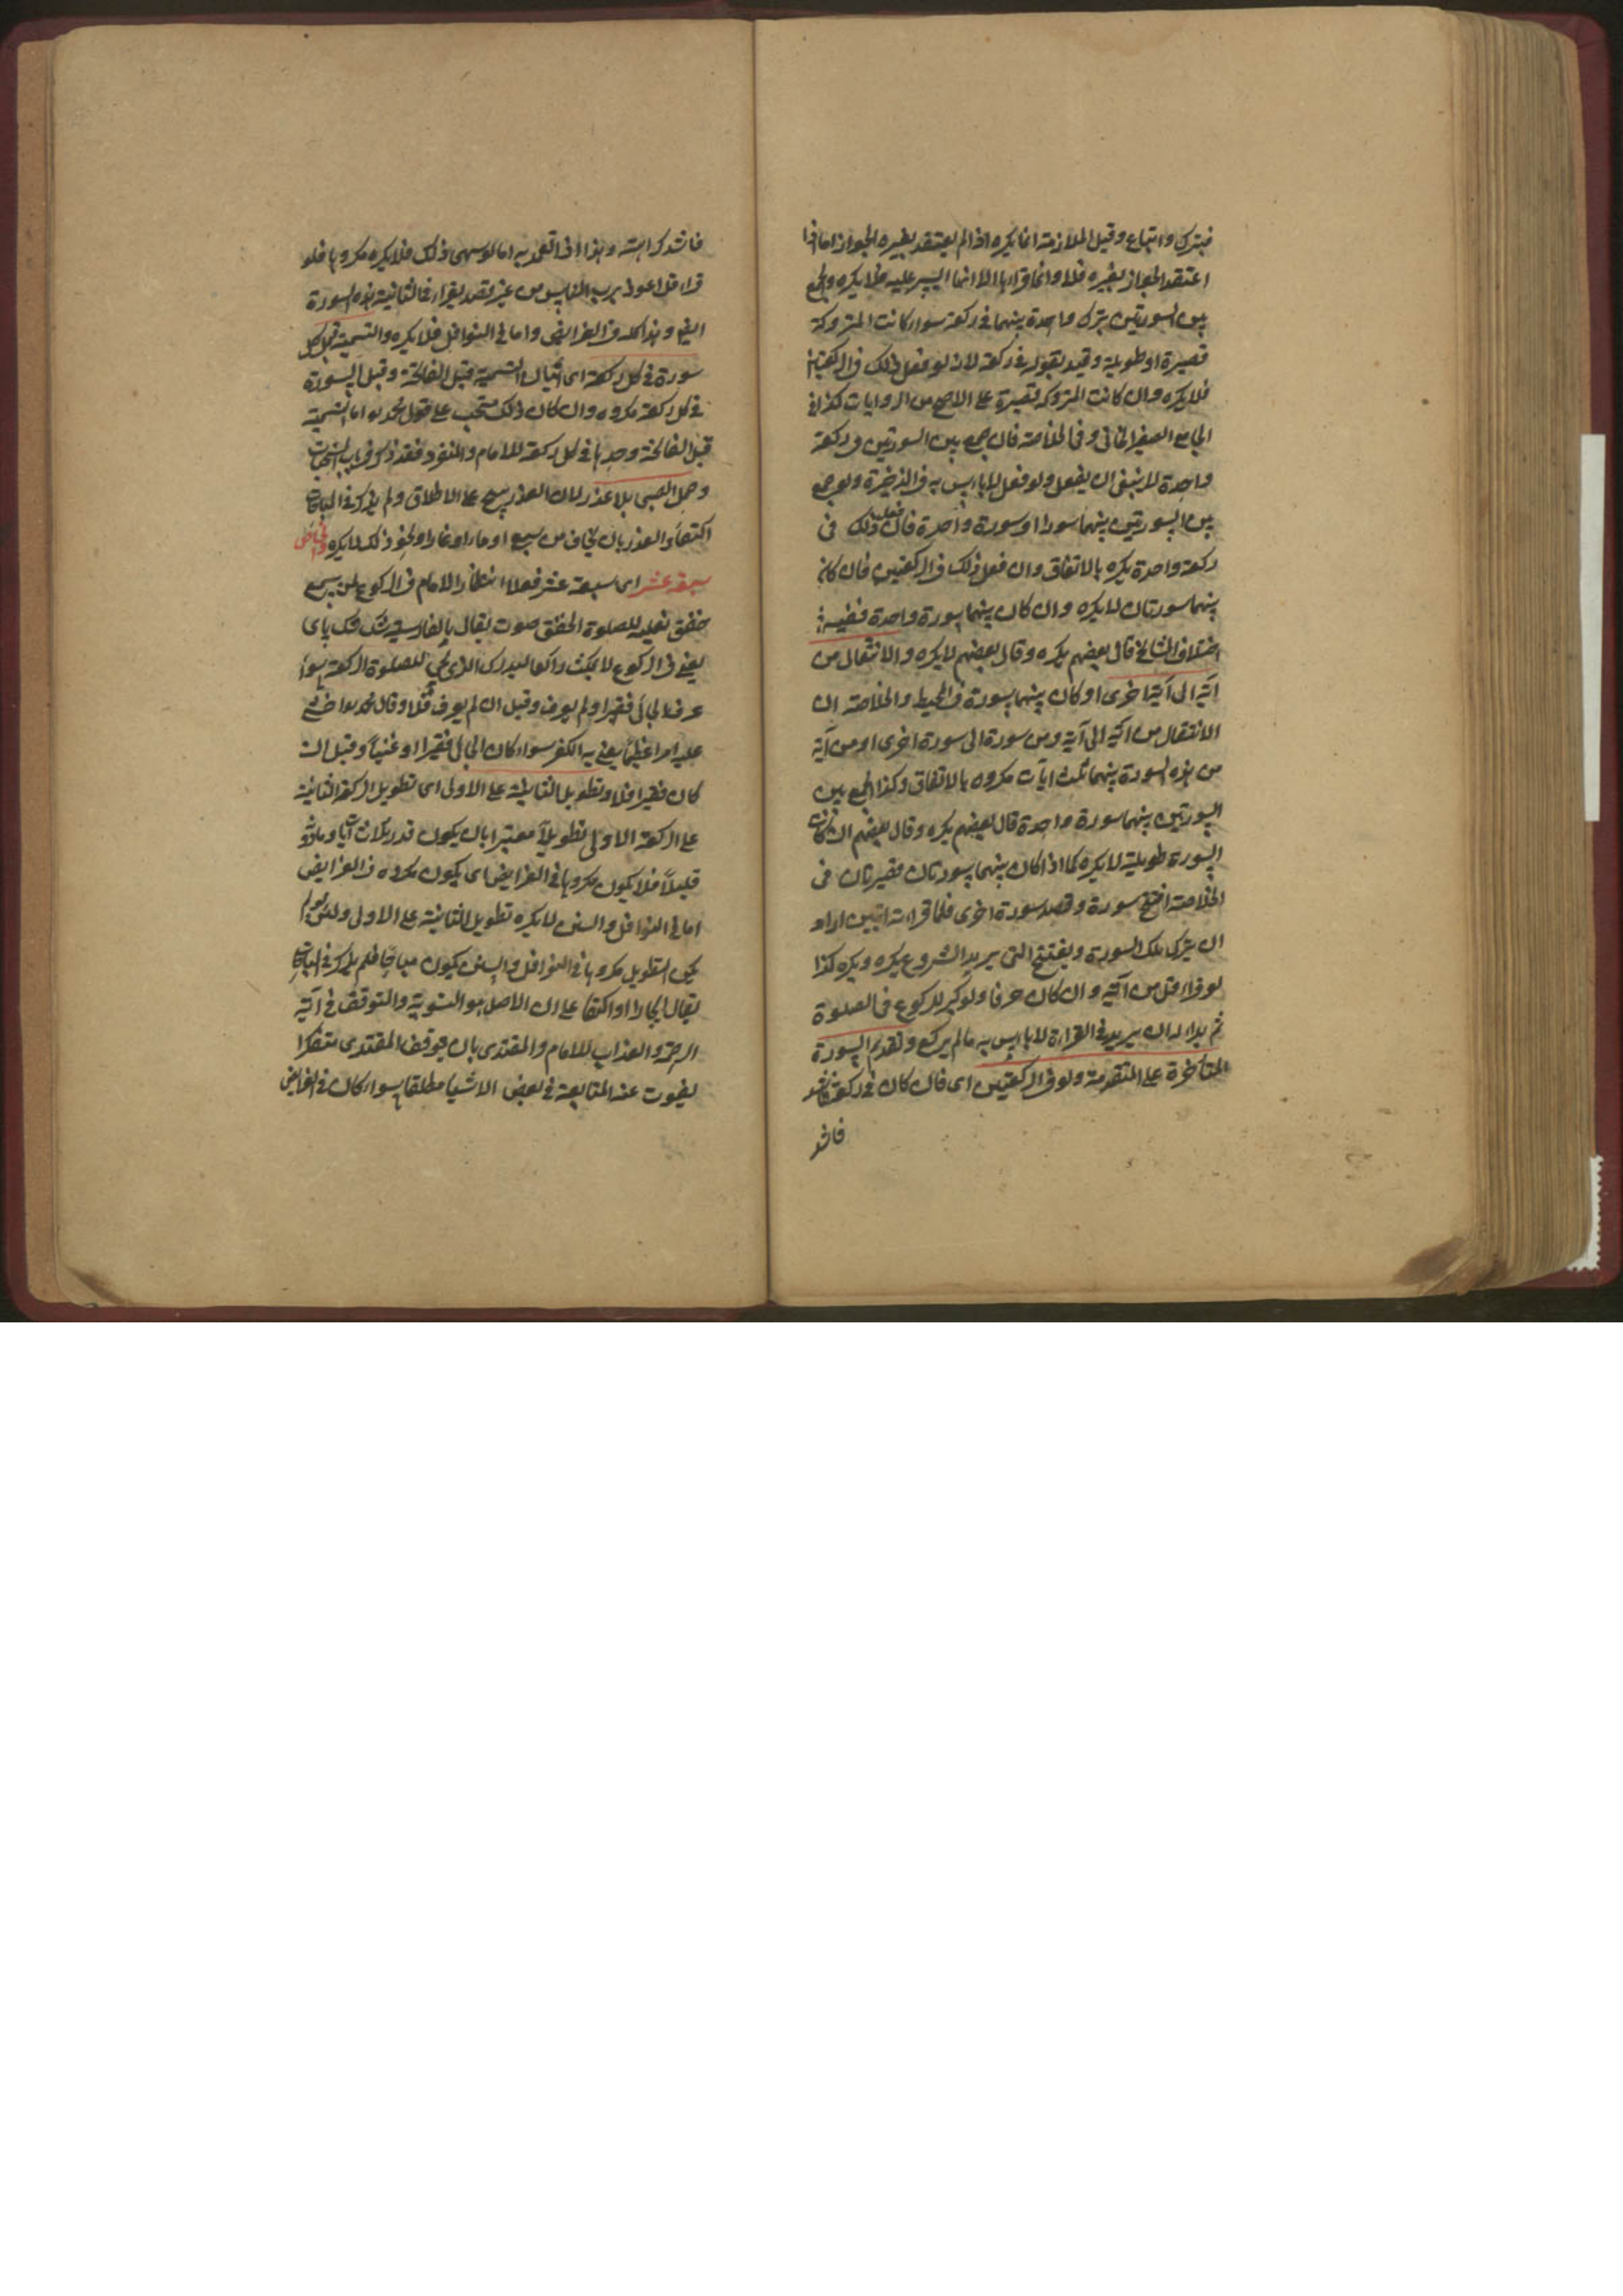 فبترك واتباع وقيل الملازمة انما يكره اذا لم يعتقد بغيره الجواز اما اذا
اعتقد الجواز بغيره فلا وانما قراءها الا انها ايسر عليه فلا يكره والجمع
بين السورتين بترك واحدة بينهما فى ركعة سواء كانت المتروكة
قصيرة او طويلة وقيد بقوله فى ركعة لانه لو فعل ذلك فى الركعتين
فلا يكره وان كانت المتروكة قصيرة على الاصح من الروايات كذا فى
الجامع الصغير الخانى وفى الخلاصة فان جمع بين السورتين فى ركعة
واحدة لا ينبغى ان يفعل ولو فعل لا باس به فى الذخيرة ولو جمع
بين السورتين بينهما سور او سورة واحدة فان فعل ذلك فى
ركعة واحدة يكره بالاتفاق وان فعل ذلك فى الركعتين فان كان
بينهما سورتان لا يكره وان كان بينهما سورة واحدة ففيه
اختلاف المشايخ قال بعضهم يكره وقال بعضهم لا يكره والانتقال من
آية الى آية اخرى او كان بينهما سورة فى المحيط والخلاصة ان
الانتقال من آية الى آية ومن سورة الى سورة اخرى او من آية
من هذه السورة بينهما ثلث ايات مكروه بالاتفاق وكذا الجمع بين
السورتين بينهما سورة واحدة قال بعضهم يكره وقال بعضهم ان كانت
السورة طويلة لا يكره كما اذا كان بينهما سورتان قصيرتان فى
الخلاصة افتتح سورة وقصد سورة اخرى فلما قراء آية آيتين اراد
ان يترك تلك السورة ويفتتح التى يريد الشروع يكره ويكره كذا
لو قراء اقل من آية وان كان حرفا ولو كبر للركوع فى الصلوة
ثم بدا له ان يريد فى القراءة لا باس به ما لم يركع وتقديم السورة
المتاخرة على المتقدمة ولو فى الركعتين اى فان كان فى ركعة فاشد
فاشد
فاشد كراهته وهذا اذا تعمد به اما لو سهى ذلك فلا يكره مكروها فلو
قراء قل اعوذ برب الناس من غير قصد يقراء فى الثانية هذه السورة
ايضا وهذا كله فى الفرائض واما فى النوافل فلا يكره والتسمية قبل كل
سورة فى كل ركعة اى اتيان التسمية قبل الفاتحة وقبل السورة
فى كل ركعة مكروه وان كان ذلك مستحب على قول محمد اما التسمية
قبل الفاتحة وحدها فى كل ركعة للامام والمنفرد فقد ذكر فى باب المستحبات
وحمل الصبى بلا عذر لان العذر يبيح على الاطلاق ولم يذكر فى المباحات
اكتفاء والعذر بان يخاف من سبع او حار او نحو ذلك لا يكره
سبعة عشر اى سبعة عشر فعلا انتظار الامام فى الركوع لمن يسمع
خفق نعليه للصلوة الخفق صوت يقال بالفارسية
يعنى فى الركوع لا يمكث راكعا ليدرك الذى يجئ للصلوة الركعة سواء
عرف الجائى فقيرا ولم يعرف وقيل ان لم يعرف فلا وقال محمد اخشى
عليه امرا عظيما يعنى به الكفر سواء كان الجائى فقيرا او غنيا وقيل ان
كان فقيرا فلا وتطويل الثانية على الاولى اى تطويل الركعة الثانية
على الركعة الاولى تطويلا معتبرا بان يكون قدر ثلاث آيات وما دونه
قليلا فلا يكون مكروها فى الفرائض اى يكون مكروه فى الفرائض
اما فى النوافل والسنن لا يكره تطويل الثانية على الاولى ولئن لم
يكن التطويل مكروها فى النوافل والسنن يكون مباحا فلم يذكر فى المباحات
يقال ايجازا او اكتفاء على ان الاصل هو التسوية والتوقف فى آية
الرحمة والعذاب للامام والمقتدى بان يتوقف المقتدى متفكرا
يفوت عنه المتابعة فى بعض الاشيا مطلقا سواء كان فى الفرائض